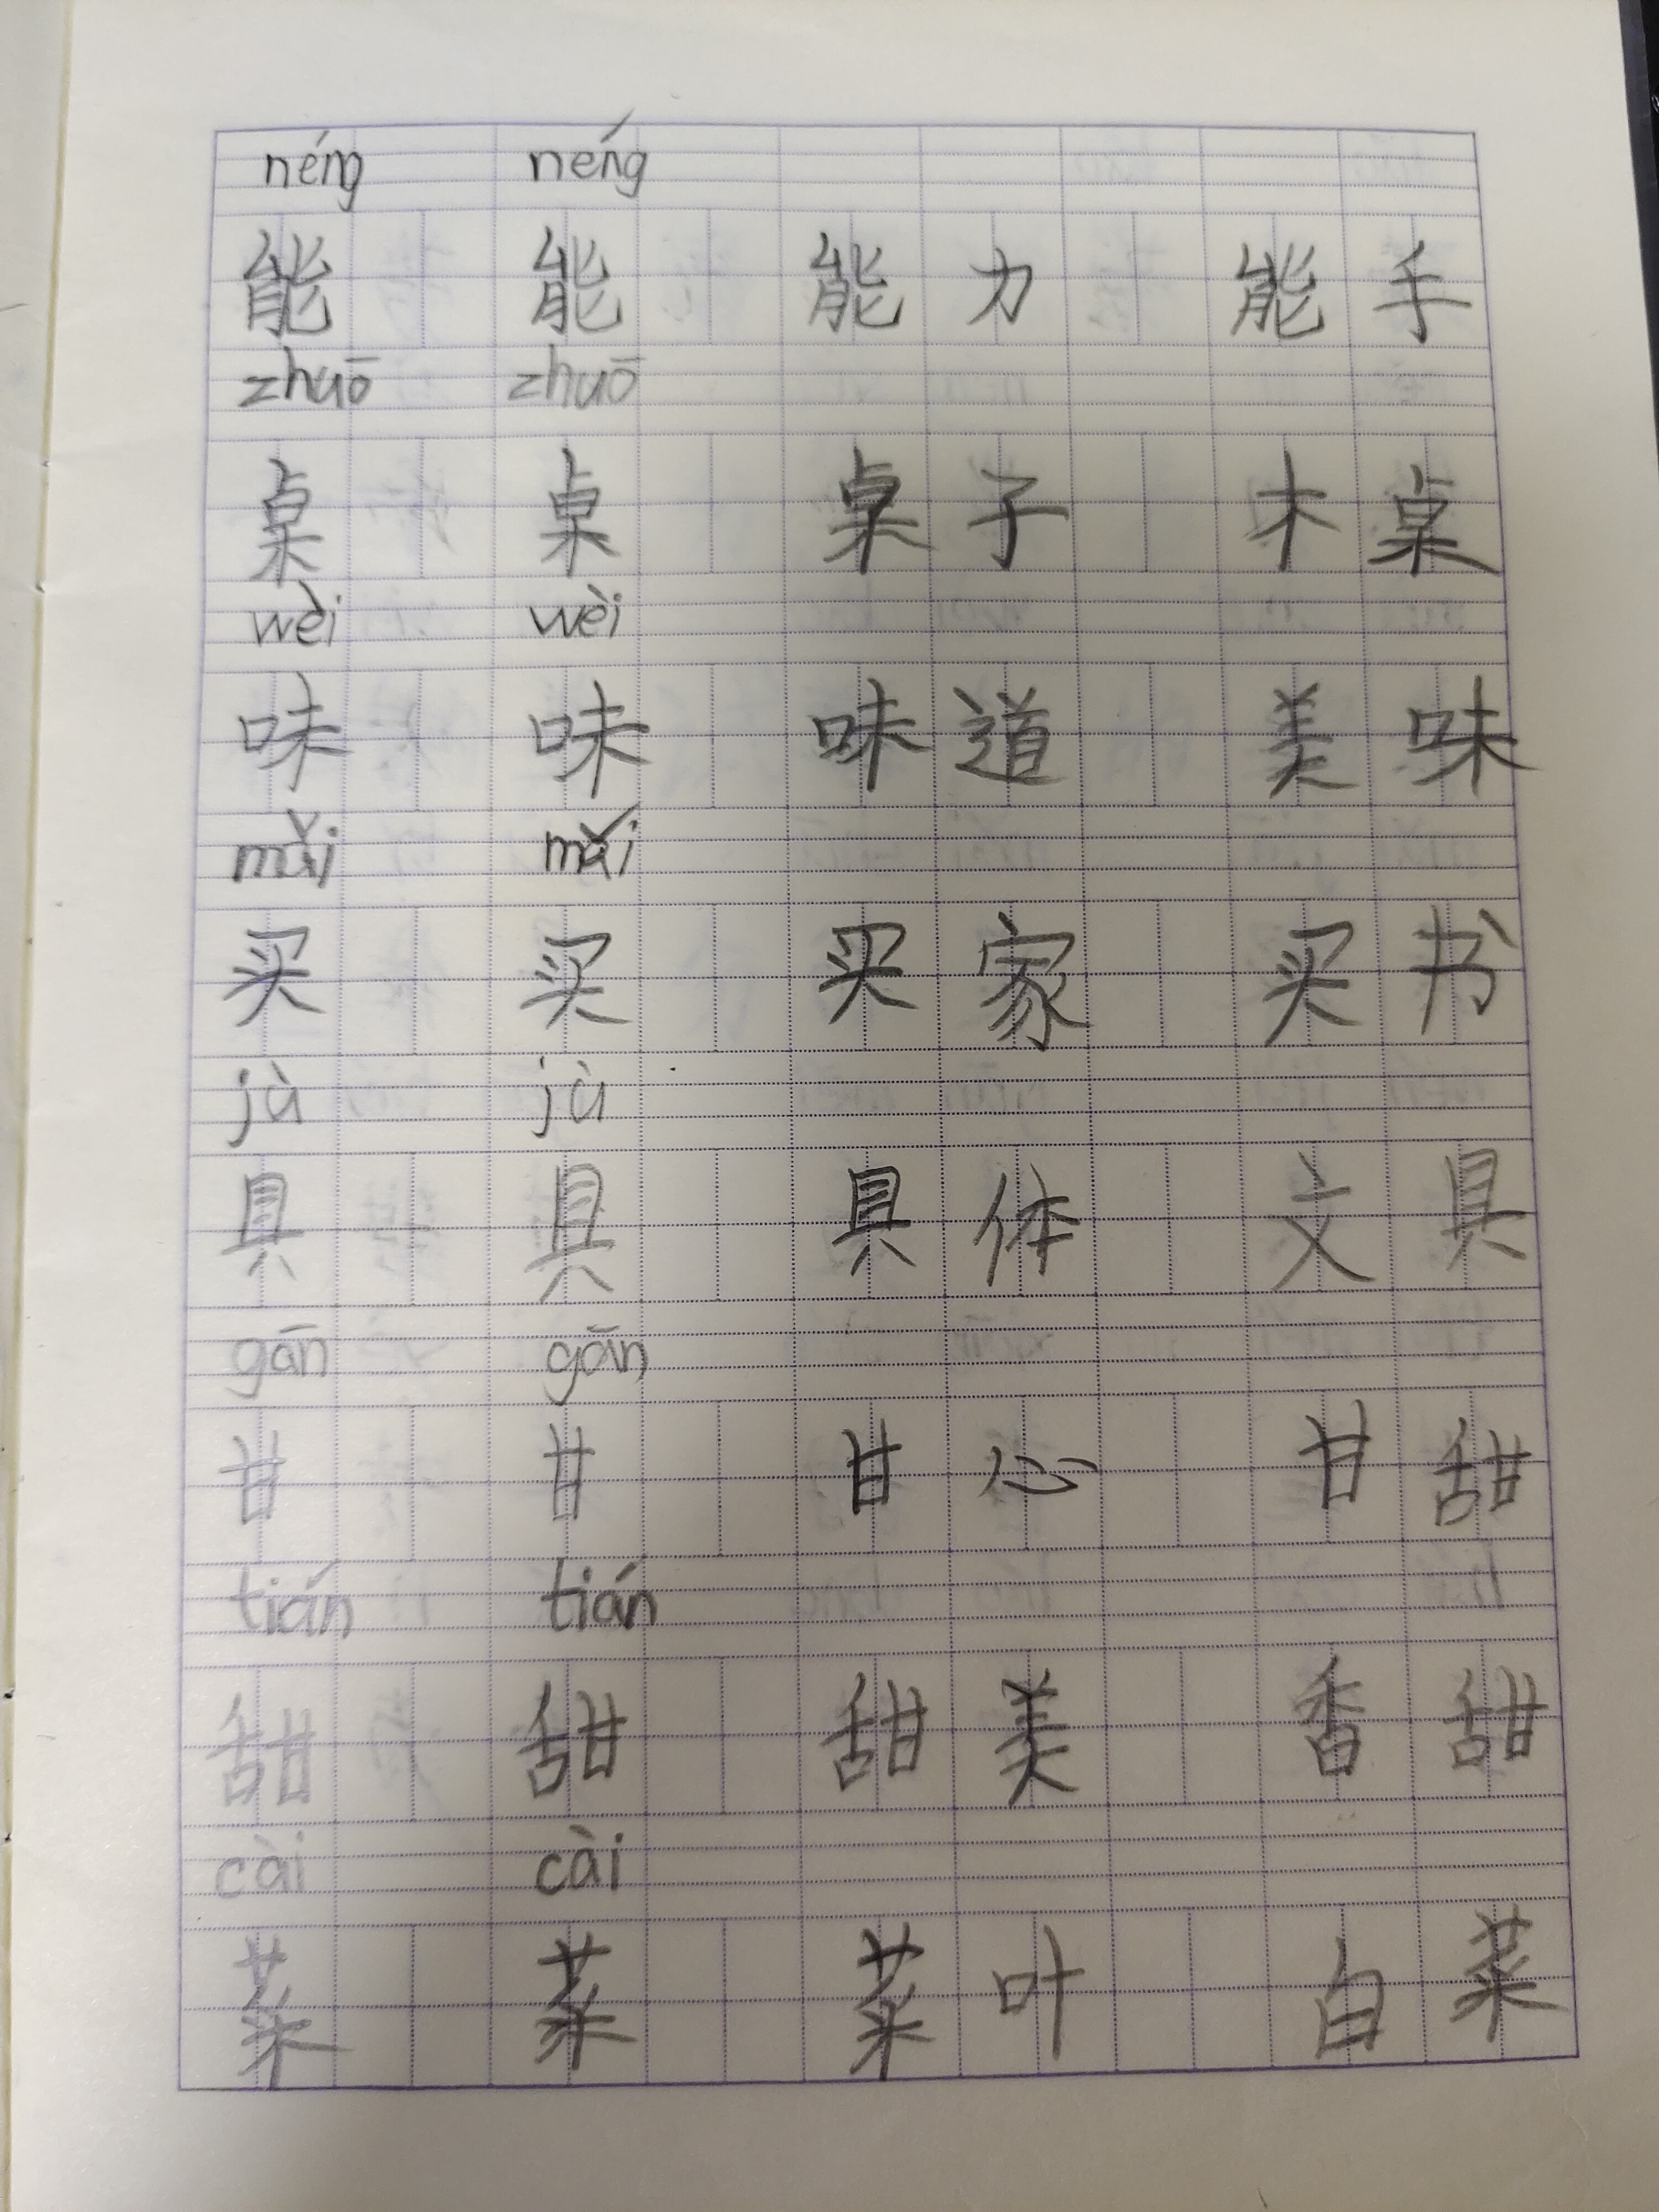 néng néng
能 能 能力 能手
zhuō zhuō
桌 桌 桌子 木桌
wèi wèi
味 味 味道 美味
mǎi mǎi
买 买 买家 买书
jù jù
具 具 具体 文具
gān gān
甘 甘 甘心 甘甜
tián tián
甜 甜 甜美 香甜
cài cài
菜 菜 菜叶 白菜